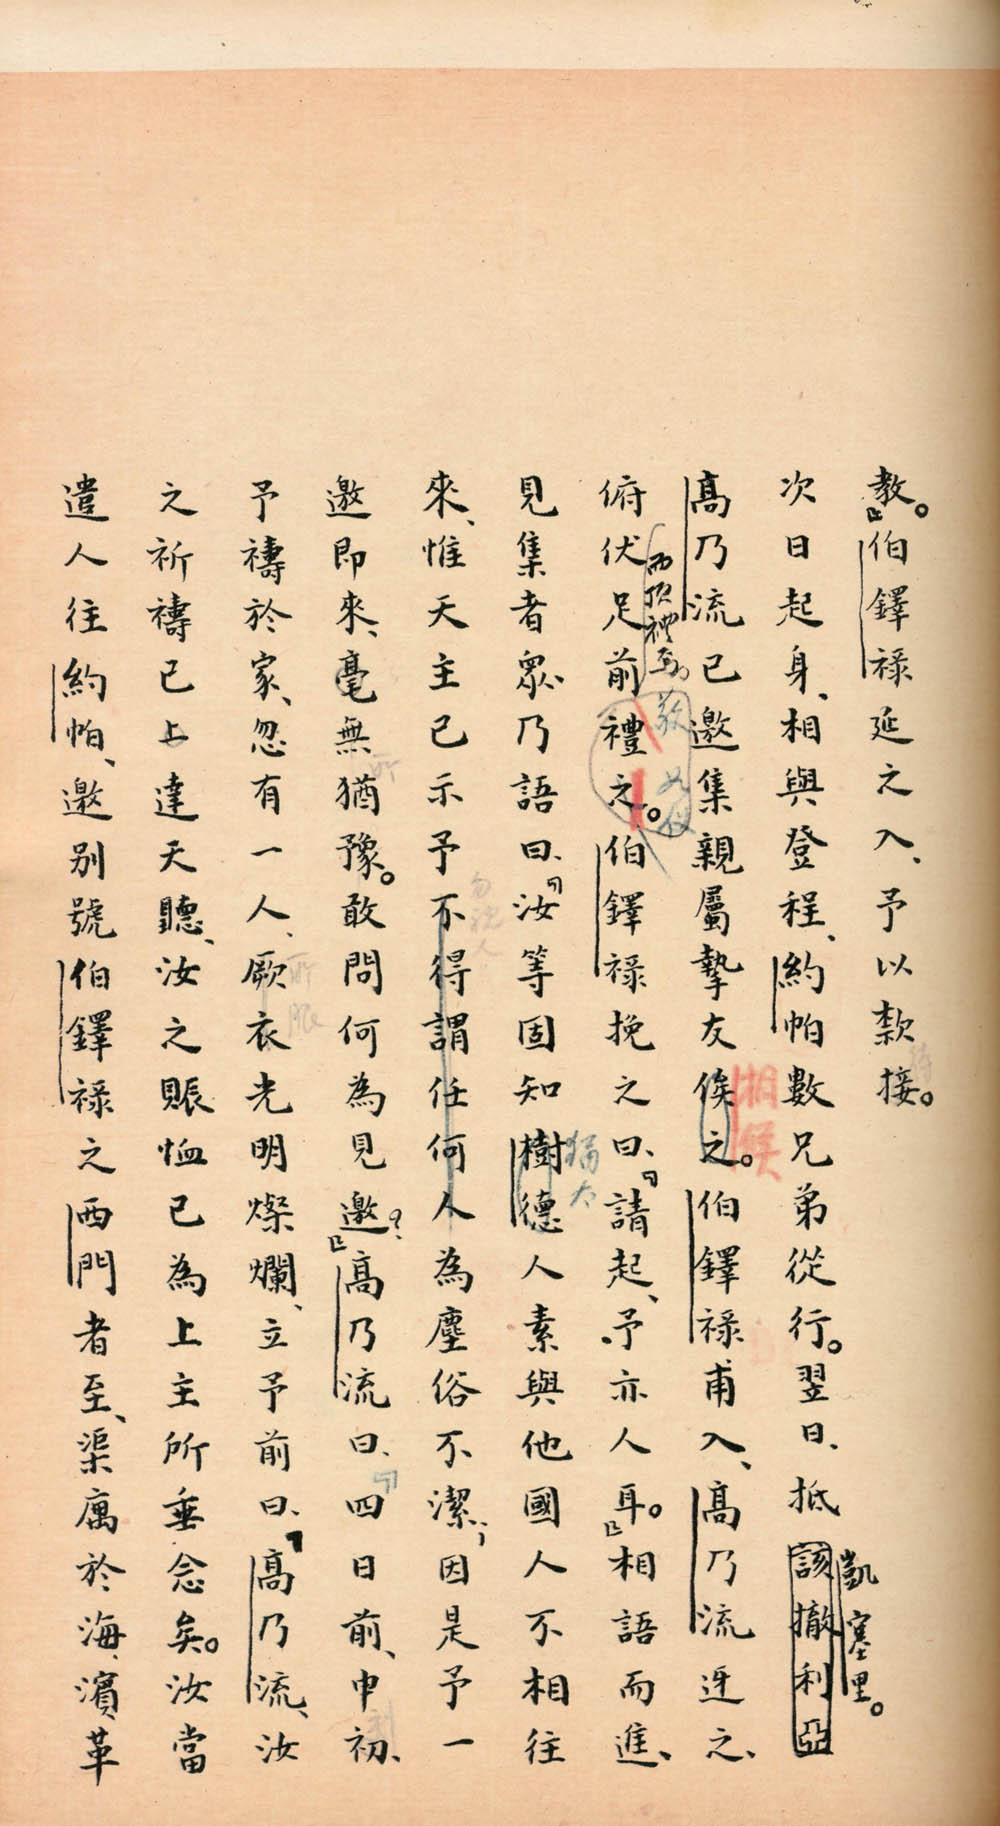 教。」伯鐸祿延之入、予以款接。
次日起身、相與登程、約帕數兄弟從行。翌日、抵該撤利亞
凱塞里。
高乃流已邀集親屬摯友俟之。伯鐸祿甫入、高乃流迓之、
相候
俯伏足前禮之。伯鐸祿挽之曰、「請起、予亦人耳。」相語而進、
而頂禮焉
見集者眾、乃語曰、「汝等固知樹德人素與他國人不相往
猶太
來、惟天主已示予不得謂任何人為塵俗不潔；因是予一
邀即來、毫無猶豫。敢問何為見邀？」高乃流曰、「四日前、申初、
予禱於家、忽有一人、厥衣光明燦爛、立予前曰、『高乃流、汝
所服
之祈禱已上達天聽、汝之賑恤已為上主所垂念矣。汝當
遣人往約帕、邀別號伯鐸祿之西門者至、渠寓於海濱革